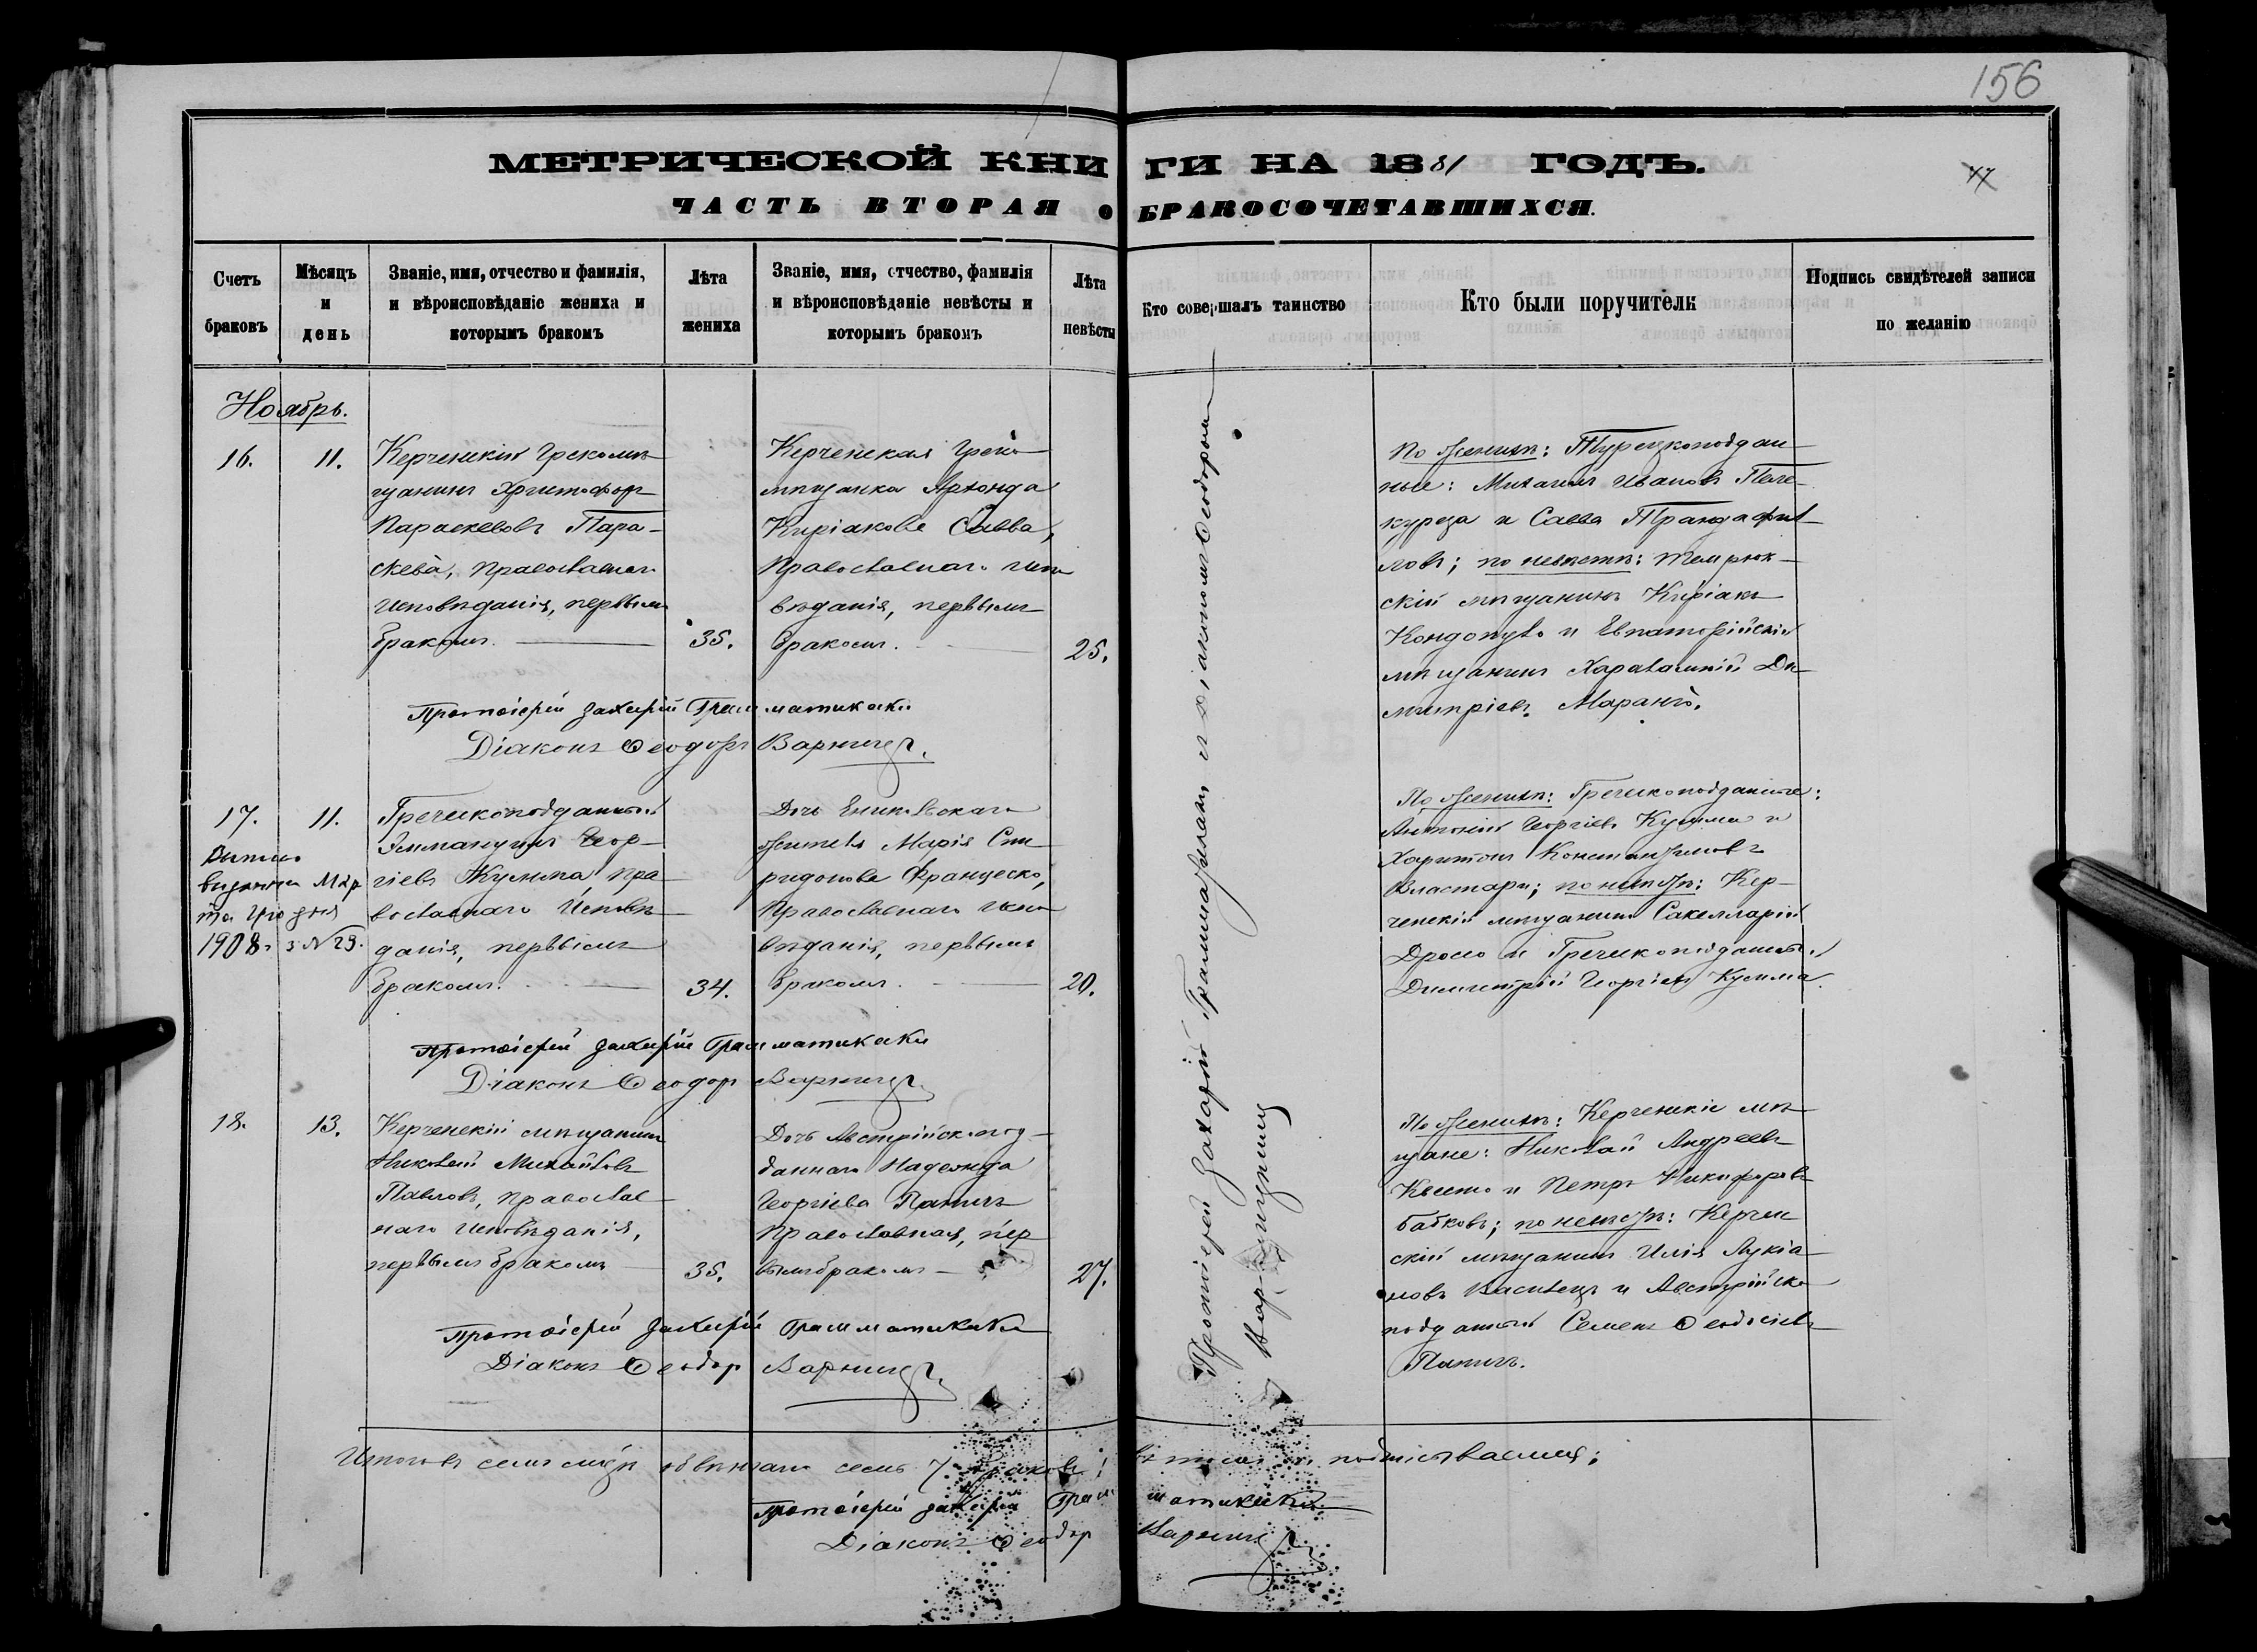 156
МЕТРИЧЕСКОЙ КНИГИ НА 1881 ГОДЪ.
ЧАСТЬ ВТОРАЯ О БРАКОСОЧЕТАВШИХСЯ.
Счетъ браковъ
Мѣсяцъ и день
Званіе, имя, отчество и фамилія,
и вѣроисповѣданіе жениха и
которымъ бракомъ
Лѣта жениха
Званіе, имя, отчество, фамилія
и вѣроисповѣданіе невѣсты и
которымъ бракомъ
Лѣта невѣсты
Кто совершалъ таинство
Кто были поручители
Подпись свидѣтелей записи
по желанію
Ноябрь.
16.
11.
Керченскій Грекомѣ-
щанинъ Христофоръ
Параскевовъ Пара-
скева, Православнаго
Исповѣданія, первымъ
бракомъ.
35.
Керченская Греко-
мѣщанка Архонда
Киріакова Савва,
Православнаго Испо
вѣданія, первымъ
бракомъ.
25.
По женихѣ: Турецкоподдан-
ные: Михаилъ Ивановъ
и Савва Трандафил-
ловъ; по невѣстѣ: Темрюк-
скій мѣщанинъ Киріакъ
Кондопуло и Евпаторійскій
мѣщанинъ Харалампій Ди-
митріевъ Маранго.
Протоіерей Захарій Грамматикаки
Діаконъ Ѳеодоръ Варницъ
17.
11.
выдана
1908 г. з № 29.
Греческоподданный
Эммануилъ Геор-
гіевъ Кузьма, Пра
вославнаго Исповѣ
данія, первымъ
бракомъ.
34.
Дочь Еникольскаго
жителя Марія Спи
ридонова Франческо,
Православнаго Испо
вѣданія, первымъ
бракомъ.
20.
По женихѣ: Греческоподданные:
Антоній Георгіевъ Кузьма и
Харитонъ Константиновъ
Властари; по невѣстѣ: Кер-
ченскій мѣщанинъ Сакелларій
Дросо и Греческоподданный
Димитрій Георгіевъ Кузьма.
Протоіерей Захарій Грамматикаки
Діаконъ Ѳеодоръ Варницъ
18.
13.
Керченскій мѣщанинъ
Николай Михайловъ
Павловъ, Православ
наго Исповѣданія,
первымъ бракомъ
35.
Дочь Австрійскопод-
даннаго Надежда
Георгіева Паничъ
Православная, пер
вымъ бракомъ
27.
По женихѣ: Керченскіе мѣ-
щане: Николай Андреевъ
и Петръ Никифоровъ
Бабковъ; по невѣстѣ: Керчен
скій мѣщанинъ Илія Лукіа-
новъ и Австрійско
подданный Семенъ Ѳеодосіевъ
Паничъ.
Протоіерей Захарій Грамматикаки
Діаконъ Ѳеодоръ Варницъ
Протоіерей Захарій Грамматикаки и діаконъ Ѳеодоръ
Варницъ
семь 7 браковъ; въ томъ и подписываемся:
Протоіерей Захарій Грамматикаки
Діаконъ Ѳеодоръ Варницъ